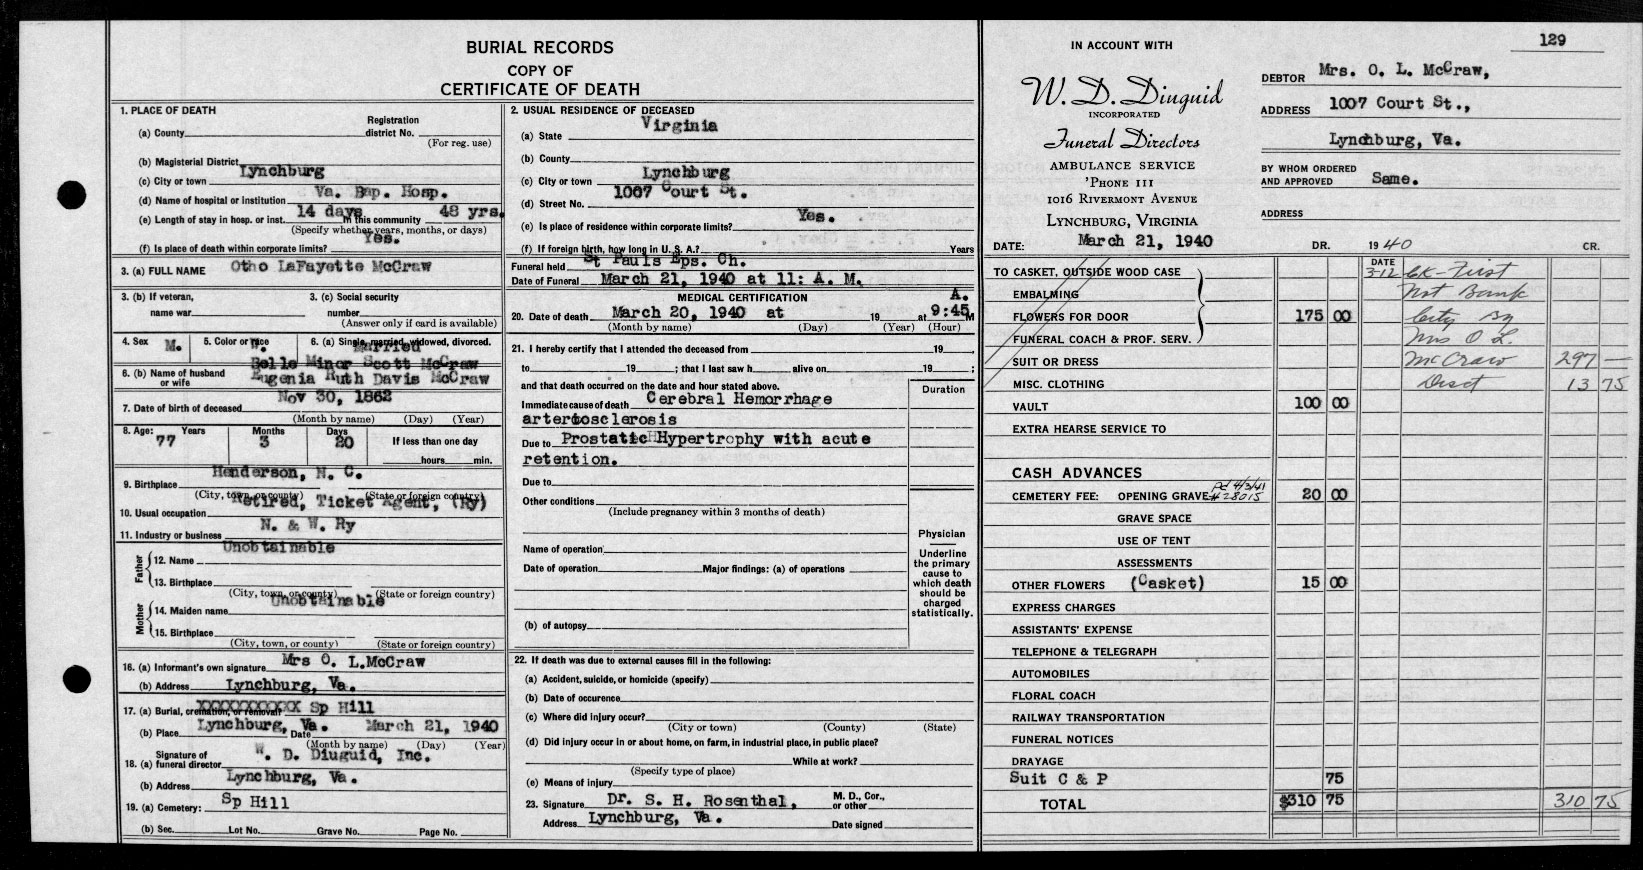 BURIAL RECORDS
COPY OF
CERTIFICATE OF DEATH
1. PLACE OF DEATH
Registration
(a) County district No.
(For reg. use)
(b) Magisterial District
(c) City or town Lynchburg
(d) Name of hospital or institution Va. Bap. Hosp.
(e) Length of stay in hosp. or inst. 14 days In this community 48 yrs.
(Specify whether years, months, or days)
(f) Is place of death within corporate limits? Yes.
3. (a) FULL NAME Otho LaFayette McCraw
3. (b) If veteran, 3. (c) Social security
name war number
(Answer only if card is available)
4. Sex M. 5. Color or race W. 6. (a) Single, married, widowed, divorced. Married
Belle Minor Scott McCraw
6. (b) Name of husband or wife Eugenia Ruth Davis McCraw
7. Date of birth of deceased Nov 30, 1862
(Month by name) (Day) (Year)
8. Age: Years Months Days If less than one day
77 3 20 hours min.
9. Birthplace Henderson, N. C.
(City, town, or county) (State or foreign country)
10. Usual occupation Retired, Ticket Agent, (Ry)
11. Industry or business N. & W. Ry
Father
12. Name Unobtainable
13. Birthplace
(City, town, or county) (State or foreign country)
Mother
14. Maiden name Unobtainable
15. Birthplace
(City, town, or county) (State or foreign country)
16. (a) Informant's own signature Mrs O. L.McCraw
(b) Address Lynchburg, Va.
17. (a) Burial, cremation, or removal? XXXXXXXXXXX Sp Hill
(b) Place Lynchburg, Va. Date March 21, 1940
(Month by name) (Day) (Year)
Signature of
18. (a) funeral director W. D. Diuguid, Inc.
(b) Address Lynchburg, Va.
19. (a) Cemetery: Sp Hill
(b) Sec. Lot No. Grave No. Page No.
2. USUAL RESIDENCE OF DECEASED
(a) State Virginia
(b) County
(c) City or town Lynchburg
(d) Street No. 1007 Court St.
(e) Is place of residence within corporate limits? Yes.
(f) If foreign birth, how long in U. S. A.? Years
Funeral held St Pauls Eps. Ch.
Date of Funeral March 21, 1940 at 11: A. M.
MEDICAL CERTIFICATION
20. Date of death March 20, 1940 at 19 at 9:45 A. M
(Month by name) (Day) (Year) (Hour)
21. I hereby certify that I attended the deceased from 19
to 19 ; that I last saw h alive on 19 ;
and that death occurred on the date and hour stated above. Duration
Immediate cause of death Cerebral Hemorrhage
arteriosclerosis
Due to Prostatic Hypertrophy with acute
retention.
Due to
Other conditions
(Include pregnancy within 3 months of death)
Name of operation
Date of operation Major findings: (a) of operations
(b) of autopsy
Physician
Underline
the primary
cause to
which death
should be
charged
statistically.
22. If death was due to external causes fill in the following:
(a) Accident, suicide, or homicide (specify)
(b) Date of occurence
(c) Where did injury occur?
(City or town) (County) (State)
(d) Did injury occur in or about home, on farm, in industrial place, in public place?
While at work?
(Specify type of place)
(e) Means of injury
23. Signature Dr. S. H. Rosenthal, M. D., Cor., or other
Address Lynchburg, Va. Date signed
129
IN ACCOUNT WITH
W. D. Diuguid
INCORPORATED
Funeral Directors
AMBULANCE SERVICE
'PHONE 111
1016 RIVERMONT AVENUE
LYNCHBURG, VIRGINIA
DEBTOR Mrs. O. L. McCraw,
ADDRESS 1007 Court St.,
Lynchburg, Va.
BY WHOM ORDERED
AND APPROVED Same.
ADDRESS
DATE: March 21, 1940 DR. 1940 CR.
DATE
TO CASKET, OUTSIDE WOOD CASE 3-12 Ck - First
EMBALMING Nat Bank
FLOWERS FOR DOOR 175 00 City By
FUNERAL COACH & PROF. SERV. Mrs O L.
SUIT OR DRESS McCraw 297 —
MISC. CLOTHING Disct 13 75
VAULT 100 00
EXTRA HEARSE SERVICE TO
CASH ADVANCES
CEMETERY FEE: OPENING GRAVE pd 4/3/41 #28015 20 00
GRAVE SPACE
USE OF TENT
ASSESSMENTS
OTHER FLOWERS (Casket) 15 00
EXPRESS CHARGES
ASSISTANTS' EXPENSE
TELEPHONE & TELEGRAPH
AUTOMOBILES
FLORAL COACH
RAILWAY TRANSPORTATION
FUNERAL NOTICES
DRAYAGE
Suit C & P 75
TOTAL $310 75 310 75